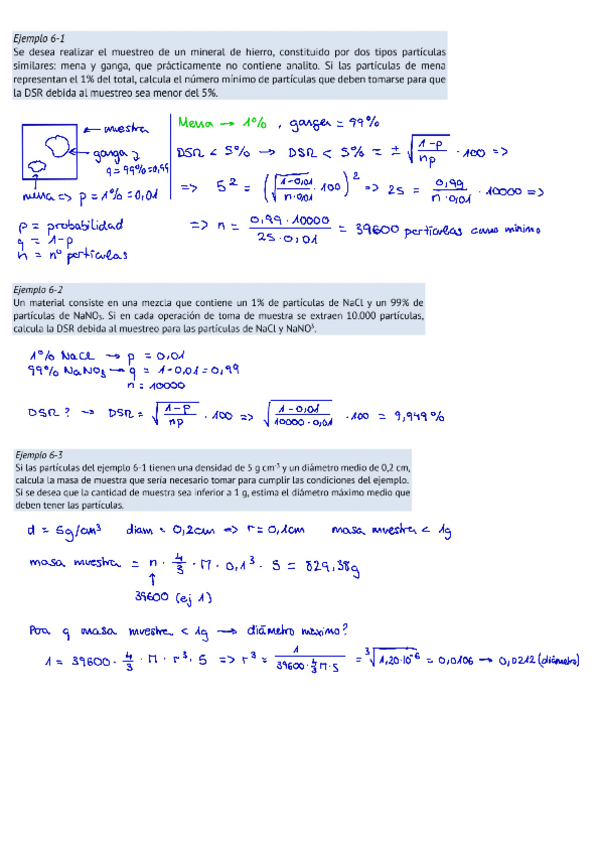 Ejemplo 6-1
Se desea realizar el muestreo de un mineral de hierro, constituido por dos tipos partículas
similares: mena y ganga, que prácticamente no contiene analito. Si las partículas de mena
representan el 1% del total, calcula el número mínimo de partículas que deben tomarse para que
la DSR debida al muestreo sea menor del 5%.
← muestra
ganga
q = 99% = 0,99
mena => p = 1% = 0,01
p = probabilidad
q = 1-p
n = nº partículas
Mena → 1%, ganga = 99%
DSR < 5% → DSR < 5% = ± √((1-p)/(np)) · 100 =>
=> 5² = (√((1-0,01)/(n·0,01)) · 100)² => 25 = 0,99/(n·0,01) · 10000 =>
=> n = (0,99 · 10000)/(25 · 0,01) = 39600 partículas como mínimo
Ejemplo 6-2
Un material consiste en una mezcla que contiene un 1% de partículas de NaCl y un 99% de
partículas de NaNO₃. Si en cada operación de toma de muestra se extraen 10.000 partículas,
calcula la DSR debida al muestreo para las partículas de NaCl y NaNO³.
1% NaCl → p = 0,01
99% NaNO₃ → q = 1-0,01 = 0,99
n = 10000
DSR? → DSR = √((1-p)/(np)) · 100 => √((1-0,01)/(10000·0,01)) · 100 = 9,949%
Ejemplo 6-3
Si las partículas del ejemplo 6-1 tienen una densidad de 5 g cm⁻³ y un diámetro medio de 0,2 cm,
calcula la masa de muestra que sería necesario tomar para cumplir las condiciones del ejemplo.
Si se desea que la cantidad de muestra sea inferior a 1 g, estima el diámetro máximo medio que
deben tener las partículas.
d = 5g/cm³ diam = 0,2cm => r = 0,1cm masa muestra < 1g
masa muestra = n · 4/3 · π · 0,1³ · 5 = 829,38g
↑
39600 (ej 1)
Para q masa muestra < 1g → diámetro máximo?
1 = 39600 · 4/3 · π · r³ · 5 => r³ = 1/(39600 · 4/3 π · 5) = ³√(1,20·10⁻⁶) = 0,0106 → 0,0212 (diámetro)